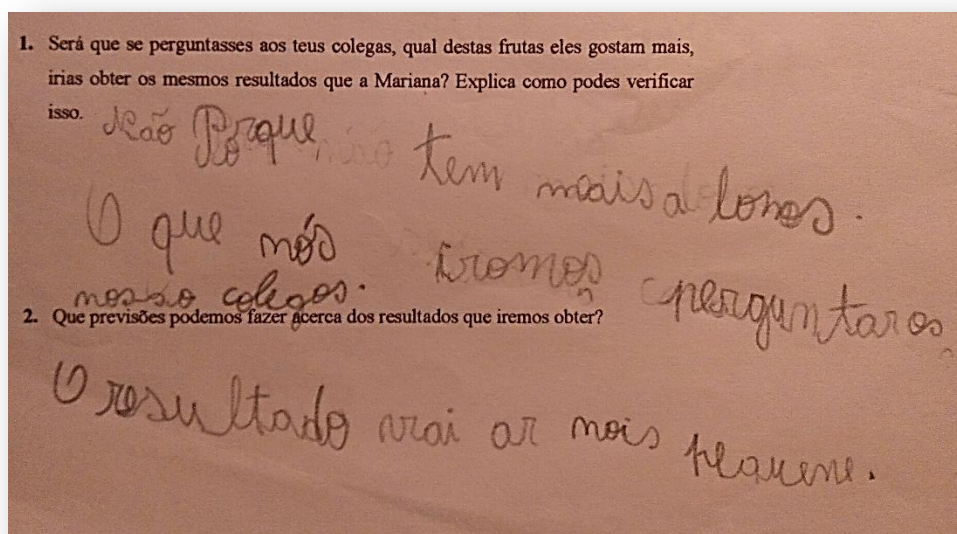 1. Será que se perguntasses aos teus colegas, qual destas frutas eles gostam mais,
irias obter os mesmos resultados que a Mariana? Explica como podes verificar
isso.
Não Porque tem mais alonos.
O que nós iromos perguntaros
nosso colegos.
2. Que previsões podemos fazer acerca dos resultados que iremos obter?
O resultado vai ar mois